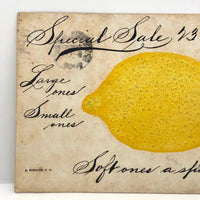 Special Sale
Large
ones
Small
ones
Soft ones a